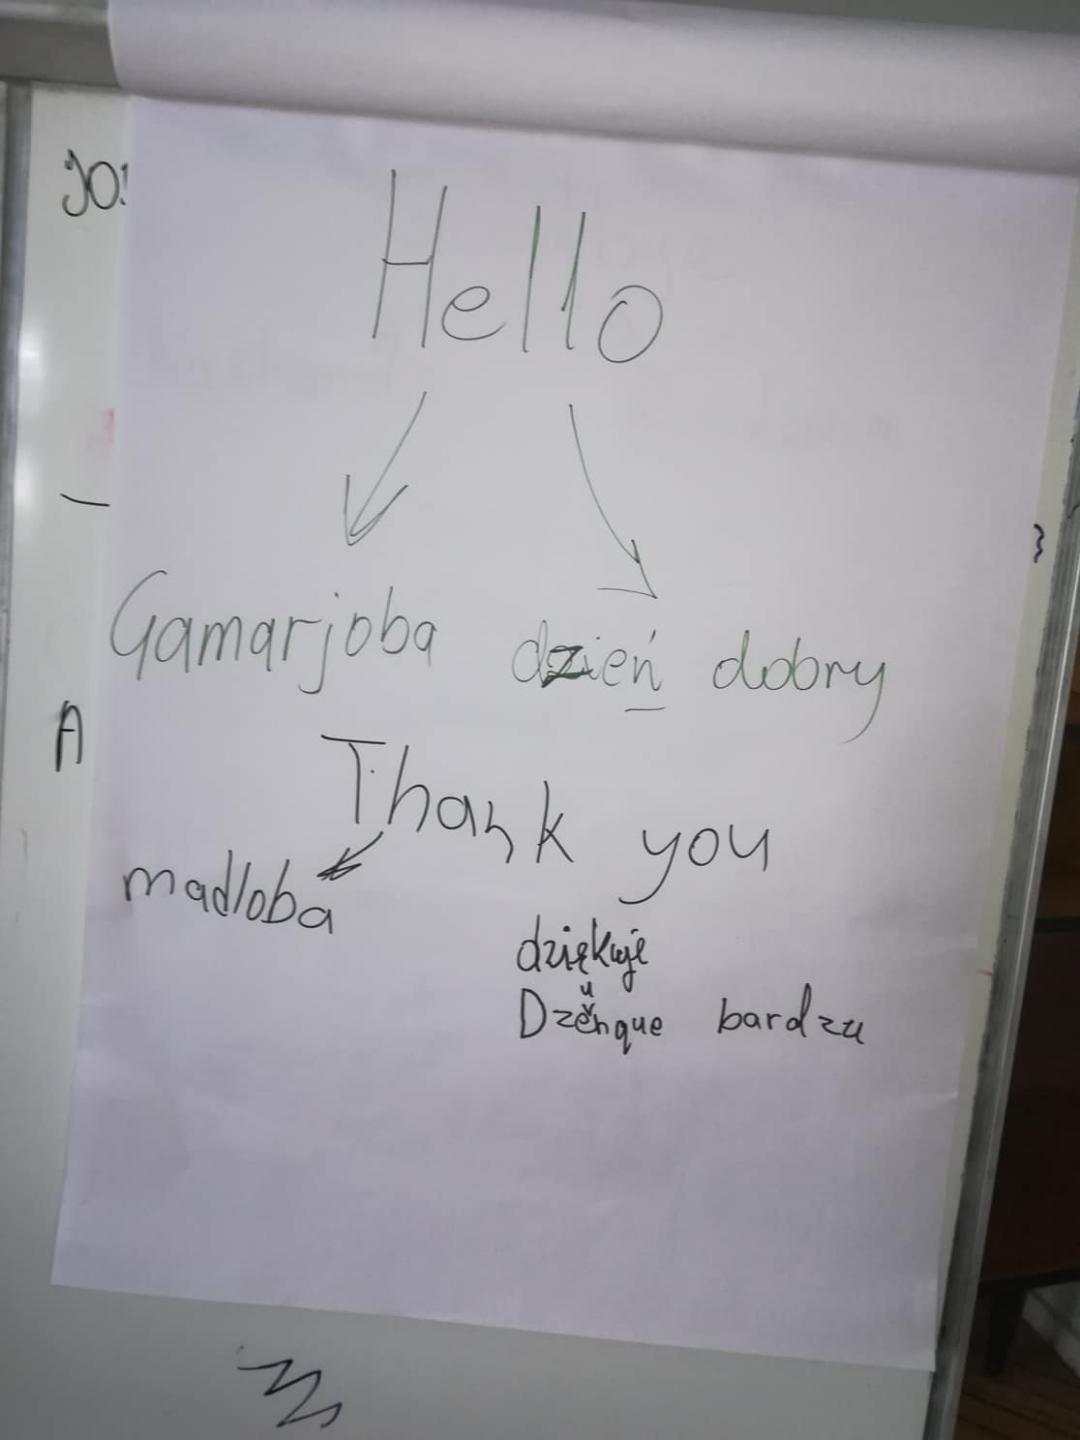 JO!
Hello
Gamarjoba dzień dobry
A
Thank you
madloba
dziękuję
Dzěnque bardzu